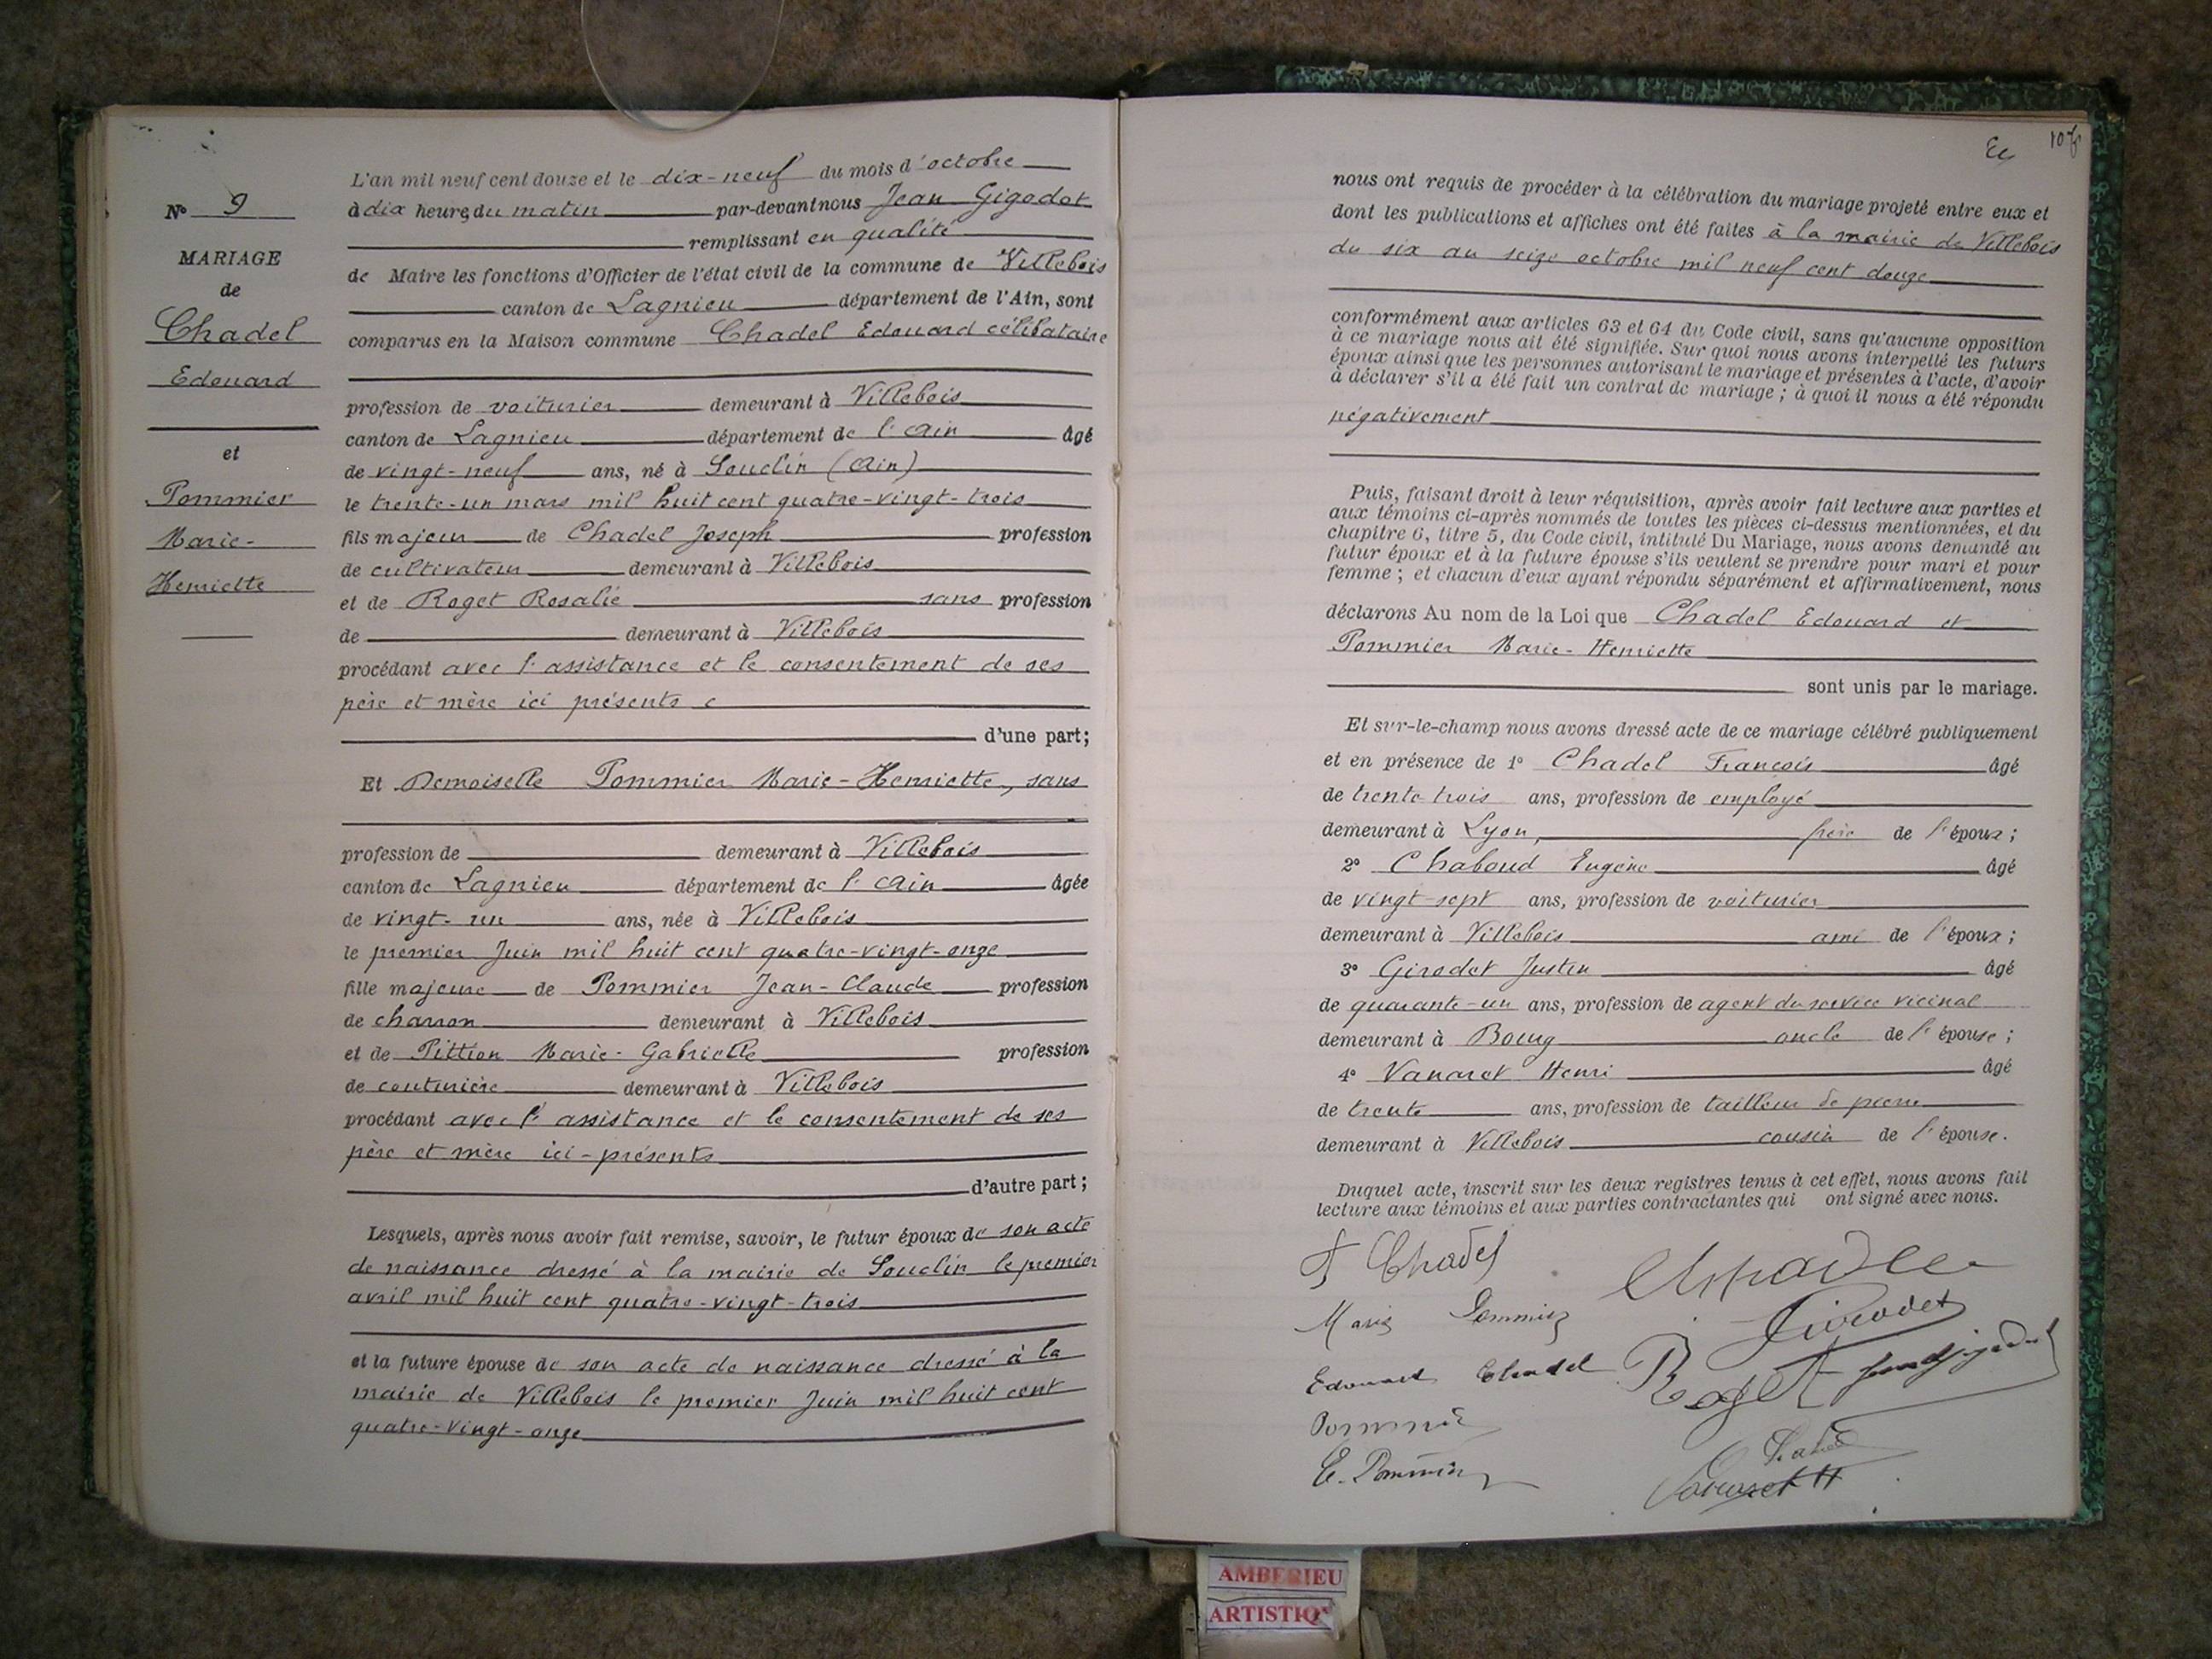 N° 9
MARIAGE
de
Chadel
Edouard
et
Pommier
Marie-
Henriette
L'an mil neuf cent douze et le dix-neuf du mois d'octobre
à dix heures du matin par-devant nous Jean Gigodot
remplissant en qualité
de Maire les fonctions d'Officier de l'état civil de la commune de Villebois
canton de Lagnieu département de l'Ain, sont
comparus en la Maison commune Chadel Edouard célibataire
profession de voiturier demeurant à Villebois
canton de Lagnieu département de l'Ain âgé
de vingt-neuf ans, né à Souclin (Ain)
le trente-un mars mil huit cent quatre-vingt-trois
fils majeur de Chadel Joseph profession
de cultivateur demeurant à Villebois
et de Roget Rosalie sans profession
de demeurant à Villebois
procédant avec l'assistance et le consentement de ses
père et mère ici présents
d'une part;
Et Demoiselle Pommier Marie-Henriette, sans
profession de demeurant à Villebois
canton de Lagnieu département de l'Ain âgée
de vingt-un ans, née à Villebois
le premier Juin mil huit cent quatre-vingt-onze
fille majeure de Pommier Jean-Claude profession
de charron demeurant à Villebois
et de Pittion Marie-Gabrielle profession
de couturière demeurant à Villebois
procédant avec l'assistance et le consentement de ses
père et mère ici-présents
d'autre part;
Lesquels, après nous avoir fait remise, savoir, le futur époux de son acte
de naissance dressé à la mairie de Souclin le premier
avril mil huit cent quatre-vingt-trois
et la future épouse de son acte de naissance dressé à la
mairie de Villebois le premier Juin mil huit cent
quatre-vingt-onze
nous ont requis de procéder à la célébration du mariage projeté entre eux et
dont les publications et affiches ont été faites à la mairie de Villebois
du six au seize octobre mil neuf cent douze
conformément aux articles 63 et 64 du Code civil, sans qu'aucune opposition
à ce mariage nous ait été signifiée. Sur quoi nous avons interpellé les futurs
époux ainsi que les personnes autorisant le mariage et présentes à l'acte, d'avoir
à déclarer s'il a été fait un contrat de mariage; à quoi il nous a été répondu
négativement
Puis, faisant droit à leur réquisition, après avoir fait lecture aux parties et
aux témoins ci-après nommés de toutes les pièces ci-dessus mentionnées, et du
chapitre 6, titre 5, du Code civil, intitulé Du Mariage, nous avons demandé au
futur époux et à la future épouse s'ils veulent se prendre pour mari et pour
femme; et chacun d'eux ayant répondu séparément et affirmativement, nous
déclarons Au nom de la Loi que Chadel Edouard et
Pommier Marie-Henriette
sont unis par le mariage.
Et sur-le-champ nous avons dressé acte de ce mariage célébré publiquement
et en présence de 1° Chadel François âgé
de trente trois ans, profession de employé
demeurant à Lyon, frère de l'époux;
2° Chaboud Eugène âgé
de vingt-sept ans, profession de voiturier
demeurant à Villebois ami de l'époux;
3° Girodet Justin âgé
de quarante-un ans, profession de agent du service vicinal
demeurant à Bourg oncle de l'épouse;
4° Vanaret Henri âgé
de trente ans, profession de tailleur de pierre
demeurant à Villebois cousin de l'épouse.
Duquel acte, inscrit sur les deux registres tenus à cet effet, nous avons fait
lecture aux témoins et aux parties contractantes qui ont signé avec nous.
F Chadel
Marie Pommier Girodet
Edouard Chadel Roget
Pommier
E. Pommier
Vanaret H
AMBERIEU
ARTISTIQ